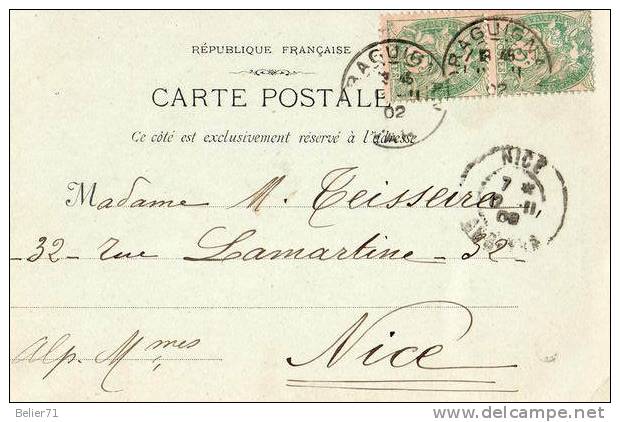 RÉPUBLIQUE FRANÇAISE
CARTE POSTALE
Ce côté est exclusivement réservé à l'adresse
RAGUIGN
02
RAGUIGNA
02
NICE
7
11
Madame M. Teisseire,
32 - rue Lamartine - 32
Nice
Alp. Mmes
Belier71
www.delcampe.net